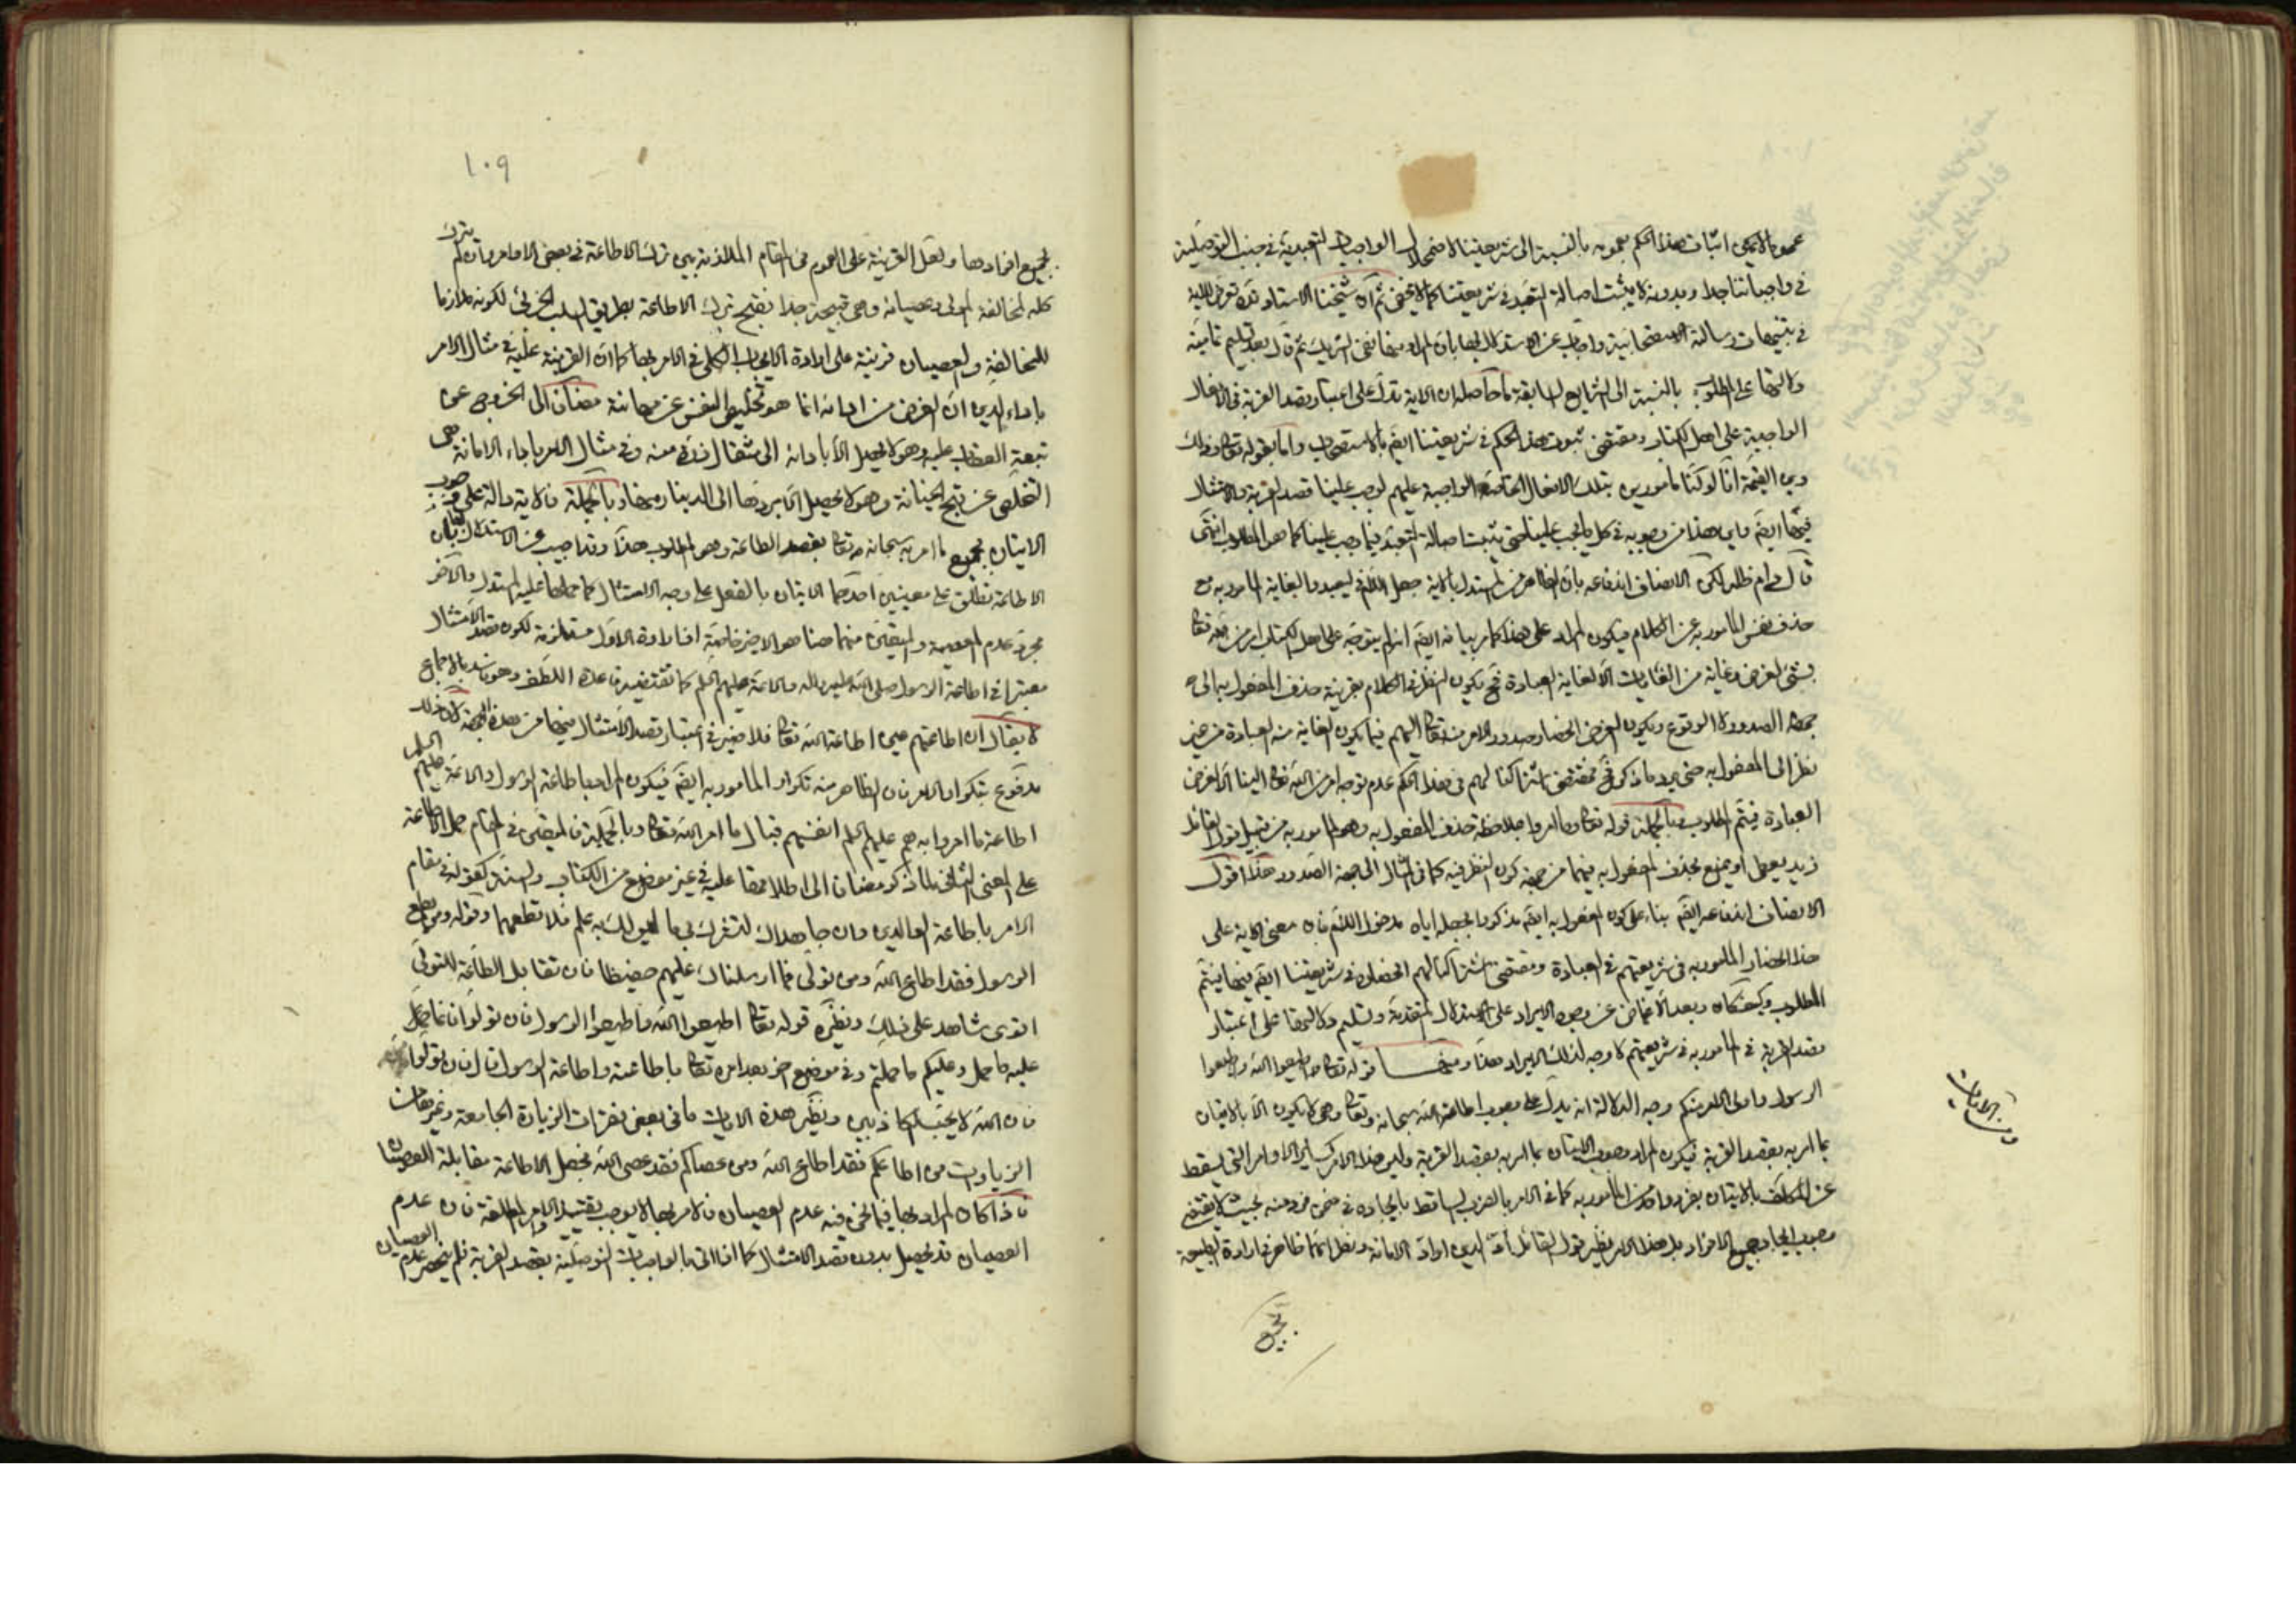 عمومها لا يمكن اثبات هذا الحكم بعمومه بالنسبة الى شريعتنا لاضمحلال الواجبات التعبدية في جنب التوصلية
في واجباتنا جدا وبدونه لا يثبت اصالة التعبد في شريعتنا كما لا يخفى ثم ان شيخنا الاستاد قد تعرض للاية
في تنبيهات رسالة الاستصحابية واجاب عن الاستدلال بها بان المراد منها نفى الشريك ثم قال بعد تسليم تمامية
دلالتها على المطلوب بالنسبة الى الشرايع السابقة ما حاصله ان الاية تدل على اعتبار قصد القربة في الافعال
الواجبة على اهل الكتاب ومقتضى ثبوت هذا الحكم في شريعتنا ايضا بالاستصحاب واما بقوله تعالى وذلك
دين القيمة انا لو كنا مأمورين بتلك الافعال الخاصة الواجبة عليهم لوجب علينا قصد القربة والامتثال
فيها ايضا واين هذا من وجوبه في كل ما يجب علينا حتى يثبت اصالة التعبد فيما وجب علينا كما هو المطلوب انتهى
قال دام ظله لكن الانصاف اندفاعه بان الظاهر من المستدل بالاية جعل اللام في ليعبدوا لغاية المأمور به مع
حذف نفس المأمور به عن الكلام فيكون المراد على هذا كما مر بيانه ايضا انه لم يتوجه على اهل الكتاب امر من الله تعالى
بشئ لغرض وغاية من الغايات الا لغاية العبادة فح يكون النظر في الكلام بقرينة حذف المفعول به الى
جهة الصدور لا الوقوع ويكون الغرض انحصار صدور الامر منه تعالى اليهم فيما يكون الغاية منه العبادة من غير
نظر الى المفعول به حتى يرد ما ذكر فح مقتضى اشتراكنا لهم في هذا الحكم عدم توجه امر من الله تعالى الينا الا لغرض
العبادة فيتم المطلوب وبالجملة قوله تعالى وما امروا بملاحظة حذف المفعول به وهو المأمور به من قبيل قول القائل
زيد يعطى او يمنع بحذف المفعول به فيهما من جهة كون النظر فيه كما في المثال الى جهة الصدور هذا اقول
الانصاف اندفاعه ايضا بناء على كون المفعول به ايضا مذكورا بجعله اياه مدخول اللام فان معنى الاية على
هذا انحصار المأمور به في شريعتهم في العبادة ومقتضى اشتراكنا لهم انحصاره في شريعتنا ايضا فيها فيتم
المطلوب وكيف كان وبعد الاغماض عن وجوه الايراد على الاستدلال المتقدمة وتسليم دلالتها على اعتبار
قصد القربة في المأمور به في شريعتهم لا وجه لذلك الايراد هذا ومنها قوله تعالى واطيعوا الله واطيعوا
الرسول واولى الامر منكم وجه الدلالة انه يدل على وجوب اطاعة الله سبحانه وتعالى وهى لا يكون الا بالاتيان
بما امر به بقصد القربة فيكون المراد وجوب الاتيان بما امر به بقصد القربة وليس هذا الامر كساير الاوامر التى يسقط
عن المكلف بالاتيان بفرد واحد من المأمور به كما في الامر بالضرب الساقط بايجاده في ضمن فرد منه بحيث لا يقتضى
وجوب ايجاد جميع الافراد بل هذا الامر نظير قول القائل أد الدين او اد الامانة ونظائرهما ظاهر في ارادة الطبيعة
بجميع
ومن الايات
١٠٩
بجميع افرادها ولعل القرينة على العموم في المقام الملازمة بين ترك الاطاعة في بعض الاوامر وان لم يترك
كله لمخالفة المولى وعصيانه وهى قبيحة جدا فقبح ترك الاطاعة بطريق السلب الجزئى لكونه ملازما
للمخالفة والعصيان قرينة على ارادة الايجاب الكلى في الامر بها كما ان القرينة عليه في مثال الامر
باداء الدين ان الغرض من ادائه انما هو تخليص النفس عن مهانته مضافا الى الخروج عن
تبعة العقاب عليه وهو لا يحصل الا بادائه الى مثقال ذرة منه وفى مثال الامر باداء الامانة هى
التخلص عن قبح الخيانة وهو لا يحصل الا بردها الى الدينار منها وبالجملة فالاية دالة على وجوب
الاتيان بجميع ما امر به سبحانه وتعالى بقصد الطاعة وهو المطلوب هذا وقد اجيب عن الاستدلال بها بان
الاطاعة تطلق على معنيين احدهما الاتيان بالفعل على وجه الامتثال كما حملها عليه المستدل والاخر
مجرد عدم المعصية والمتيقن منهما هنا هو الاخير خاصة اذ ارادة الاول مستلزمة لكون قصد الامتثال
معتبرا في اطاعة الرسول صلى الله عليه واله والائمة عليهم السلم كما تقتضيه قاعدة اللطف وهو فاسد بالاجماع
لا يقال ان اطاعتهم عين اطاعة الله تعالى فلا ضير في اعتبار قصد الامتثال فيها من هذه الجهة لان ذلك
مدفوع بتكرار الامر فان الظاهر منه تكرار المأمور به ايضا فيكون المراد باطاعة الرسول والائمة عليهم السلم
اطاعة ما امروا به هم عليهم السلم انفسهم قبال ما امر الله تعالى وبالجملة فالمقتضى في المقام حمل الاطاعة
على المعنى الثانى لما ذكر مضافا الى اطلاقها عليه في غير موضع من الكتاب والسنة كقوله في مقام
الامر باطاعة الوالدين وان جاهداك لتشرك بى ما ليس لك به علم فلا تطعهما وقوله ومن يطع
الرسول فقد اطاع الله ومن تولى فما ارسلناك عليهم حفيظا فان تقابل الطاعة للتولى
اقوى شاهد على ذلك ونظيره قوله تعالى اطيعوا الله واطيعوا الرسول فان تولوا فانما حمل
عليه ما حمل وعليكم ما حملتم وفى موضع اخر بعد امره تعالى باطاعته واطاعة الرسول قال فان تولوا
فان الله لا يحب الكاذبين ونظير هذه الايات ما في بعض فقرات الزيارة الجامعة وغيرها من
الزيارات من اطاعكم فقد اطاع الله ومن عصاكم فقد عصى الله بجعل الاطاعة مقابلة العصيان
فاذا كان المراد بها فيما نحن فيه عدم العصيان فالامر بها لا يوجب تقييد الاوامر المطلقة فان عدم
العصيان قد يحصل بدون قصد الامتثال كما اذا اتى بالواجبات التوصلية بقصد القربة فلم ينحصر عدم العصيان